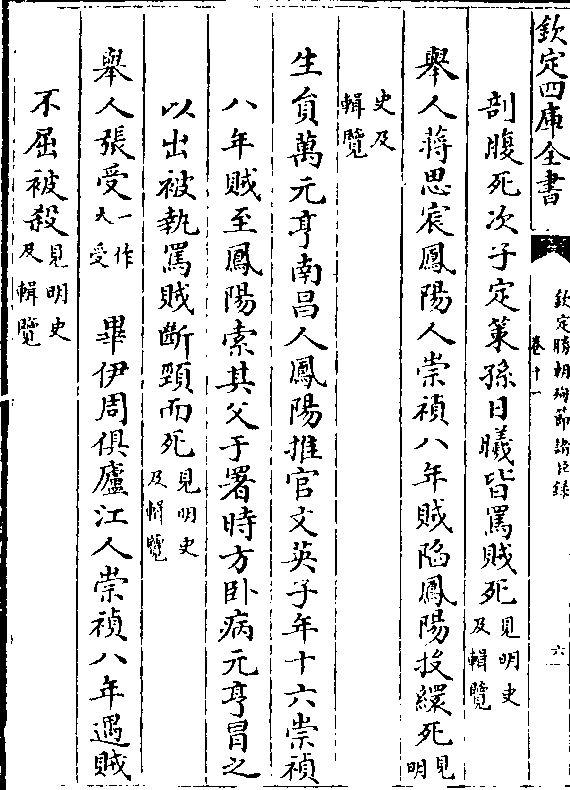 欽定四庫全書
欽定勝朝殉節諸臣錄
卷十一
六
剖腹死次子定策孫日曦皆罵賊死見明史及輯覽
舉人蔣思宸鳳陽人崇禎八年賊陷鳳陽投繯死見明
史及輯覽
生員萬元亨南昌人鳳陽推官文英子年十六崇禎
八年賊至鳳陽索其父于署時方卧病元亨冒之
以出被執罵賊斷頸而死見明史及輯覽
舉人張受一作大受 畢伊周俱廬江人崇禎八年遇賊
不屈被殺見明史及輯覽